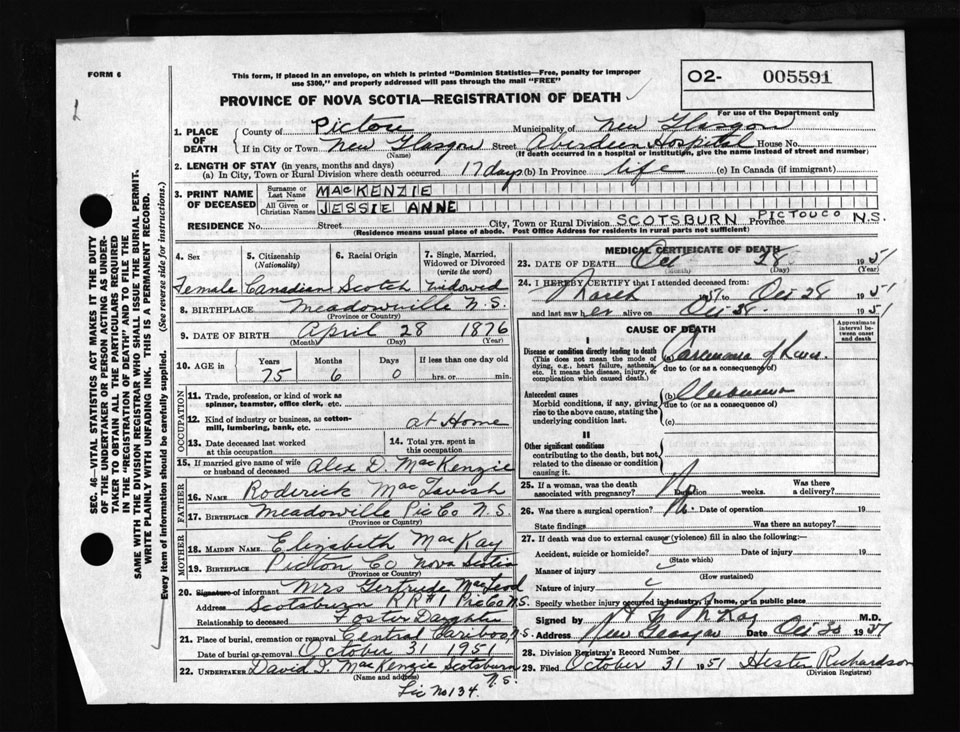 FORM 6
This form, if placed in an envelope, on which is printed "Dominion Statistics—Free, penalty for improper
use $300," and properly addressed will pass through the mail "FREE"
O2- 005591
For use of the Department only
PROVINCE OF NOVA SCOTIA—REGISTRATION OF DEATH
1. PLACE OF DEATH
County of Pictou Municipality of New Glasgow
If in City or Town New Glasgow Street Aberdeen Hospital House No.
(Name) (If death occurred in a hospital or institution, give the name instead of street and number)
2. LENGTH OF STAY (in years, months and days)
(a) In City, Town or Rural Division where death occurred 17 days (b) In Province life (c) In Canada (if immigrant)
3. PRINT NAME OF DECEASED
Surname or Last Name MACKENZIE
All Given or Christian Names JESSIE ANNE
RESIDENCE No. Street City, Town or Rural Division SCOTSBURN Province PICTOU CO N.S.
(Residence means usual place of abode. Post Office Address for residents in rural parts not sufficient)
4. Sex
5. Citizenship (Nationality)
6. Racial Origin
7. Single, Married, Widowed or Divorced (write the word)
Female Canadian Scotch Widowed
8. BIRTHPLACE Meadowville N.S.
(Province or Country)
9. DATE OF BIRTH April 28 1876
(Month) (Day) (Year)
10. AGE in Years Months Days If less than one day old
75 6 0 hrs. or min.
OCCUPATION
11. Trade, profession, or kind of work as spinner, teamster, office clerk, etc.
12. Kind of industry or business, as cotton-mill, lumbering, bank, etc. at Home
13. Date deceased last worked at this occupation
14. Total yrs. spent in this occupation
15. If married give name of wife or husband of deceased Alex D. MacKenzie
FATHER
16. NAME Roderick MacTavish
17. BIRTHPLACE Meadowville Pic Co N.S.
(Province or Country)
MOTHER
18. MAIDEN NAME Elizabeth MacKay
19. BIRTHPLACE Picton Co Nova Scotia
(Province or Country)
20. Signature of informant Mrs Gertrude MacLeod
Address Scotsburn R R #1 Pic Co N.S.
Relationship to deceased Foster Daughter
21. Place of burial, cremation or removal Central Caribou, N.S.
Date of burial or removal October 31 1951
22. UNDERTAKER David MacKenzie Scotsburn N.S.
(Name and address)
Lic No 134.
MEDICAL CERTIFICATE OF DEATH
23. DATE OF DEATH Oct 28 1951
(Month) (Day) (Year)
24. I HEREBY CERTIFY that I attended deceased from:
March 1951 to Oct 28 1951
and last saw her alive on Oct 28. 1951
CAUSE OF DEATH
Approximate interval between onset and death
I
Disease or condition directly leading to death
(This does not mean the mode of dying, e.g., heart failure, asthenia, etc. It means the disease, injury, or complication which caused death.)
(a) Carcinoma of Liver.
due to (or as a consequence of)
Antecedent causes
Morbid conditions, if any, giving rise to the above cause, stating the underlying condition last.
(b)
due to (or as a consequence of)
(c)
II
Other significant conditions
contributing to the death, but not related to the disease or condition causing it.
25. If a woman, was the death associated with pregnancy? No Duration weeks. Was there a delivery?
26. Was there a surgical operation? No. Date of operation 19
State findings Was there an autopsy?
27. If death was due to external causes (violence) fill in also the following:—
Accident, suicide or homicide? Date of injury 19
(State which)
Manner of injury
(How sustained)
Nature of injury
Specify whether injury occurred in industry, in home, or in public place
Signed by McKay M.D.
Address New Glasgow Date Oct 30 1951
28. Division Registrar's Record Number
29. Filed October 31 1951 Hester Richardson
(Division Registrar)
SEC. 46—VITAL STATISTICS ACT MAKES IT THE DUTY
OF THE UNDERTAKER OR PERSON ACTING AS UNDER-
TAKER TO OBTAIN ALL THE PARTICULARS REQUIRED
IN THE "REGISTRATION OF DEATH" AND TO FILE THE
SAME WITH THE DIVISION REGISTRAR WHO SHALL ISSUE THE BURIAL PERMIT.
WRITE PLAINLY WITH UNFADING INK. THIS IS A PERMANENT RECORD.
Every item of information should be carefully supplied. (See reverse side for instructions.)